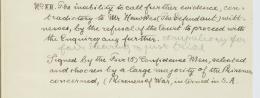 No XII. The inability to call further evidence, con-
tradictory to Mr Hawkes (The Defendant) wit-
nesses, by the refusal of the Court to proceed with
the Enquiry any further, compulsory for
fair hearing & just trial
Signed by the Five (5) Confidence Men, selected
and chosen by a large majority of the Prisoners
concerned, (Prisoners of War, interned in S.A.